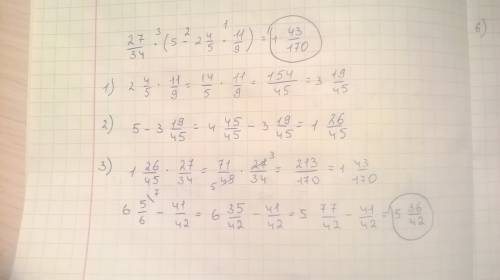 27/34 · (5 - 2 4/5 · 11/9) = 1 43/170
1) 2 4/5 · 11/9 = 14/5 · 11/9 = 154/45 = 3 19/45
2) 5 - 3 19/45 = 4 45/45 - 3 19/45 = 1 26/45
3) 1 26/45 · 27/34 = 71/45 · 27/34 = 213/170 = 1 43/170
6 5/6 - 41/42 = 6 35/42 - 41/42 = 5 77/42 - 41/42 = 5 36/42